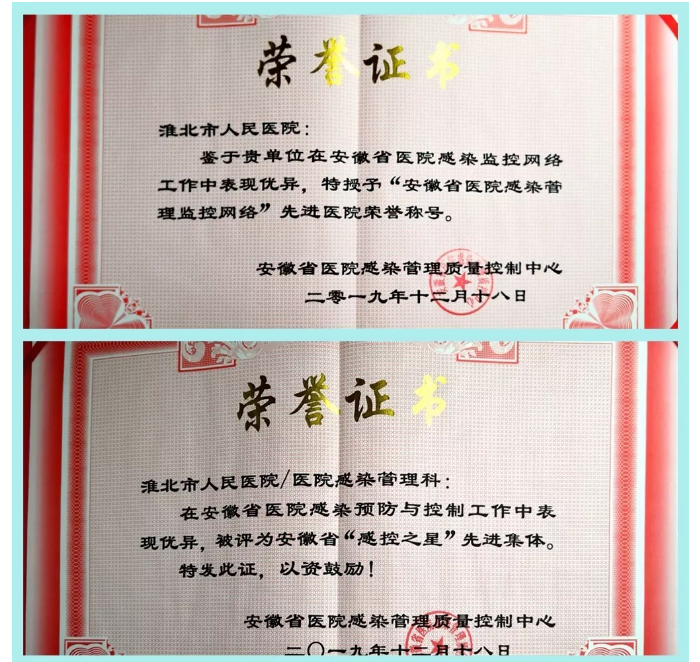 荣誉证书
淮北市人民医院：
鉴于贵单位在安徽省医院感染监控网络
工作中表现优异，特授予“安徽省医院感染管
理监控网络”先进医院荣誉称号。
安徽省医院感染管理质量控制中心
二零一九年十二月十八日
荣誉证书
淮北市人民医院/医院感染管理科：
在安徽省医院感染预防与控制工作中表
现优异，被评为安徽省“感控之星”先进集体。
特发此证，以资鼓励！
安徽省医院感染管理质量控制中心
二〇一九年十二月十八日